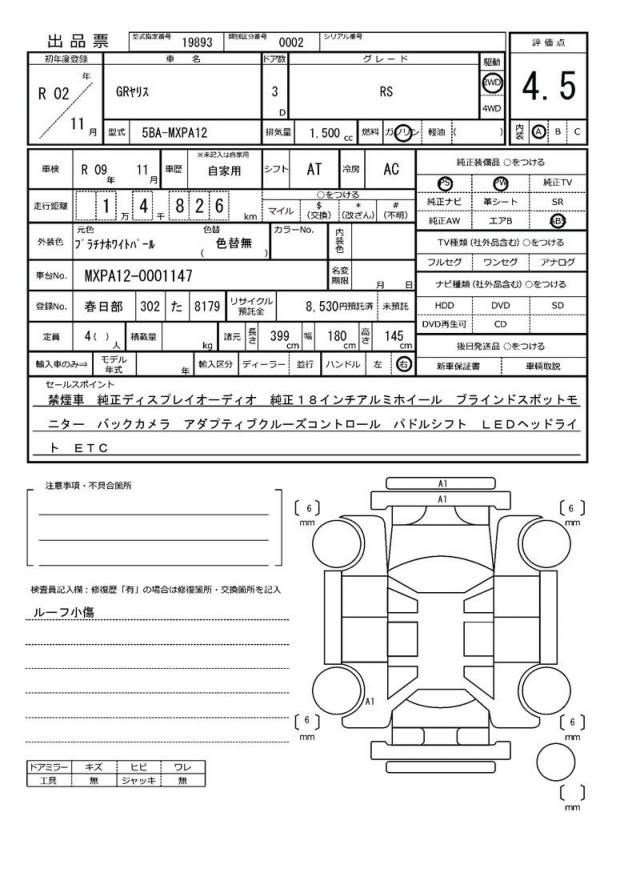 出品票 型式指定番号 19893 類別区分番号 0002 シリアル番号
初年度登録 車名 ドア数 グレード 駆動 評価点
R 02 年 11 月 GRヤリス 3 D RS 2WD 4WD 4.5
型式 5BA-MXPA12 排気量 1.500 cc 燃料 ガソリン 軽油 ( ) 内装 A B C
車検 R 09 年 11 月 車歴 ※未記入は自家用 自家用 シフト AT 冷房 AC 純正装備品 ○をつける
PS PW 純正TV
走行距離 1 万 4 千 8 2 6 km ○をつける マイル $ (交換) * (改ざん) # (不明) 純正ナビ 革シート SR
純正AW エアB ABS
外装色 元色 プラチナホワイトパール 色替 ( 色替無 ) カラーNo. 内装色 TV種類 (社外品含む) ○をつける
フルセグ ワンセグ アナログ
車台No. MXPA12-0001147 名変期限 月 日 ナビ種類 (社外品含む) ○をつける
登録No. 春日部 302 た 8179 リサイクル預託金 8,530円預託済 未預託 HDD DVD SD
DVD再生可 CD
定員 4( ) 人 積載量 kg 諸元 長さ 399 cm 幅 180 cm 高さ 145 cm 後日発送品 ○をつける
輸入車のみ⇒ モデル年式 年 輸入区分 ディーラー 並行 ハンドル 左 右 新車保証書 車輌取説
セールスポイント
禁煙車 純正ディスプレイオーディオ 純正18インチアルミホイール ブラインドスポットモ
ニター バックカメラ アダプティブクルーズコントロール パドルシフト LEDヘッドライ
ト ETC
注意事項・不具合箇所
検査員記入欄：修復歴「有」の場合は修復箇所・交換箇所を記入
ルーフ小傷
A1
A1
6 mm
6 mm
A1
6 mm
6 mm
mm
ドアミラー キズ ヒビ ワレ
工具 無 ジャッキ 無